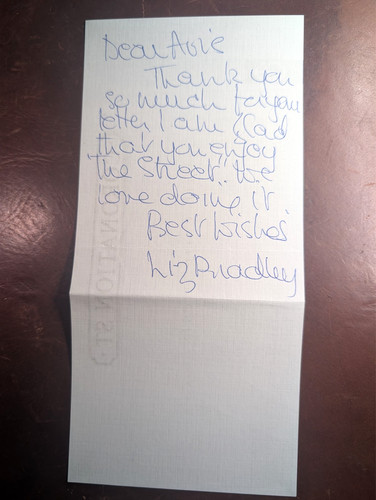 Dear Avis
Thank you
so much for your
letter I am Glad
that you enjoy
"The Street". We
love doing it.
Best Wishes
Liz Bradley
CORONATION ST.